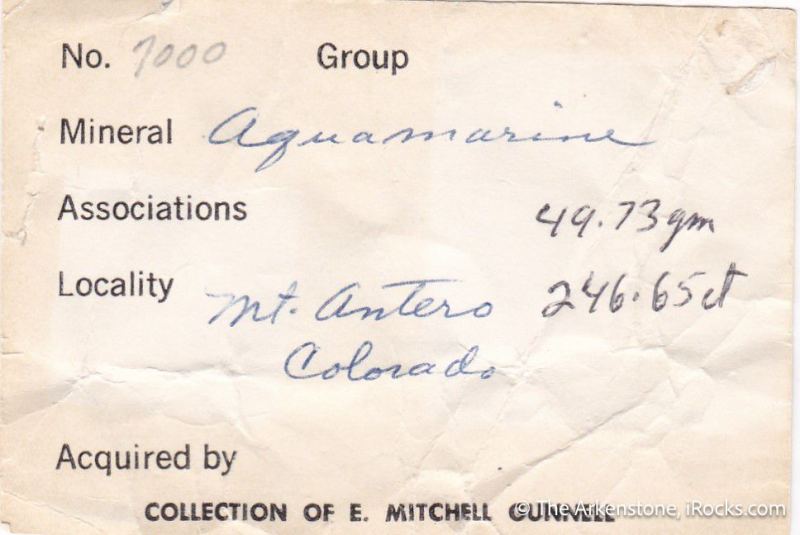 No. 7000 Group
Mineral Aquamarine
Associations 49.73gm
Locality Mt. Antero 246.65ct
Colorado
Acquired by
COLLECTION OF E. MITCHELL GUNNELL
© The Arkenstone, iRocks.com